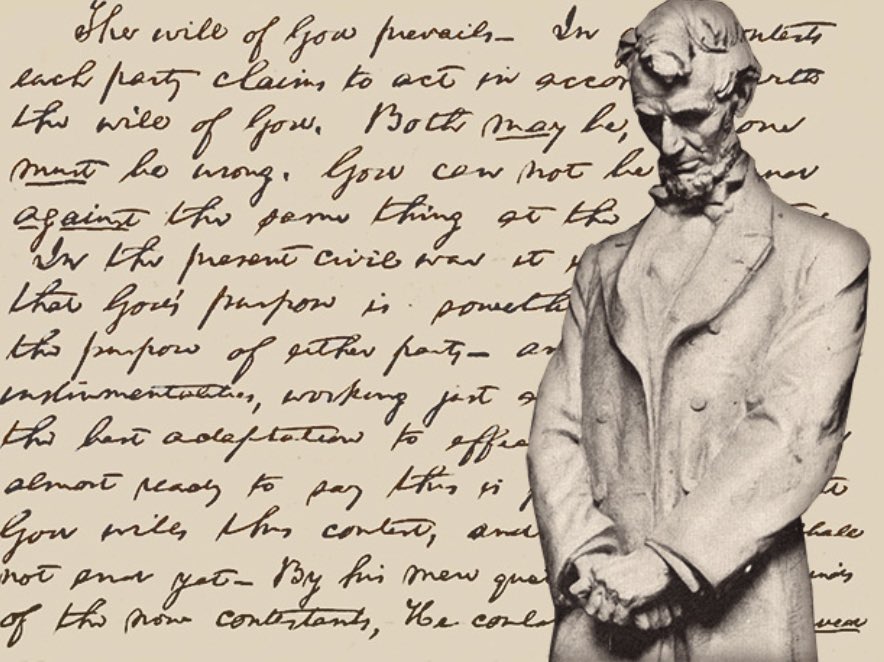 The will of God prevails— In ontests
each party claims to act in accor with
the will of God. Both may be, one
must be wrong. God can not be
against the same thing at the
In the present civil war it
that God's purpose is someth
the purpose of either party— an
instrumentalities, working just
the best adaptation to effec
almost ready to say this is
God wills this contest, and
not end yet— By his mere qu
of the now contestants, He coul